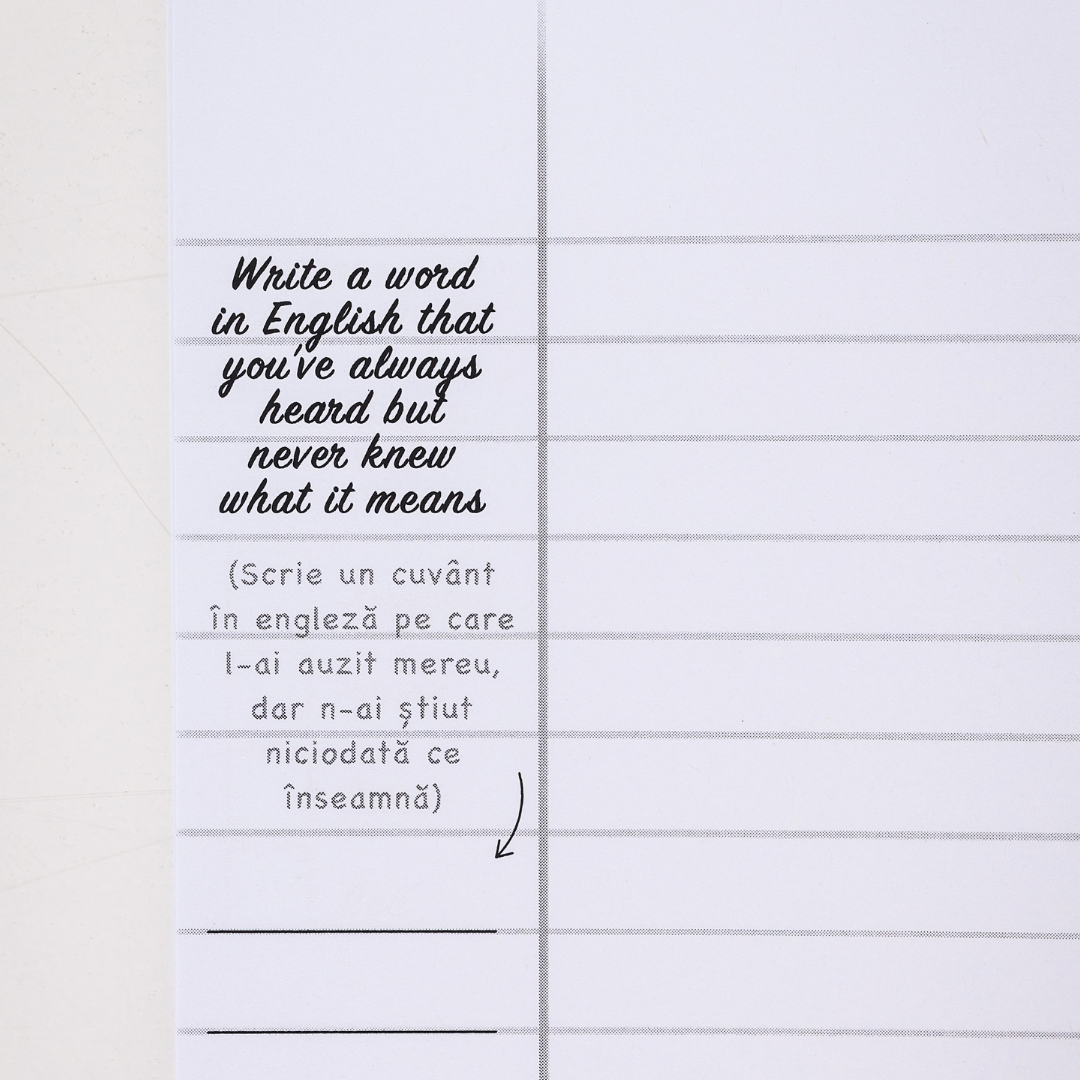 Write a word
in English that
you've always
heard but
never knew
what it means
(Scrie un cuvânt
în engleză pe care
l-ai auzit mereu,
dar n-ai știut
niciodată ce
înseamnă)